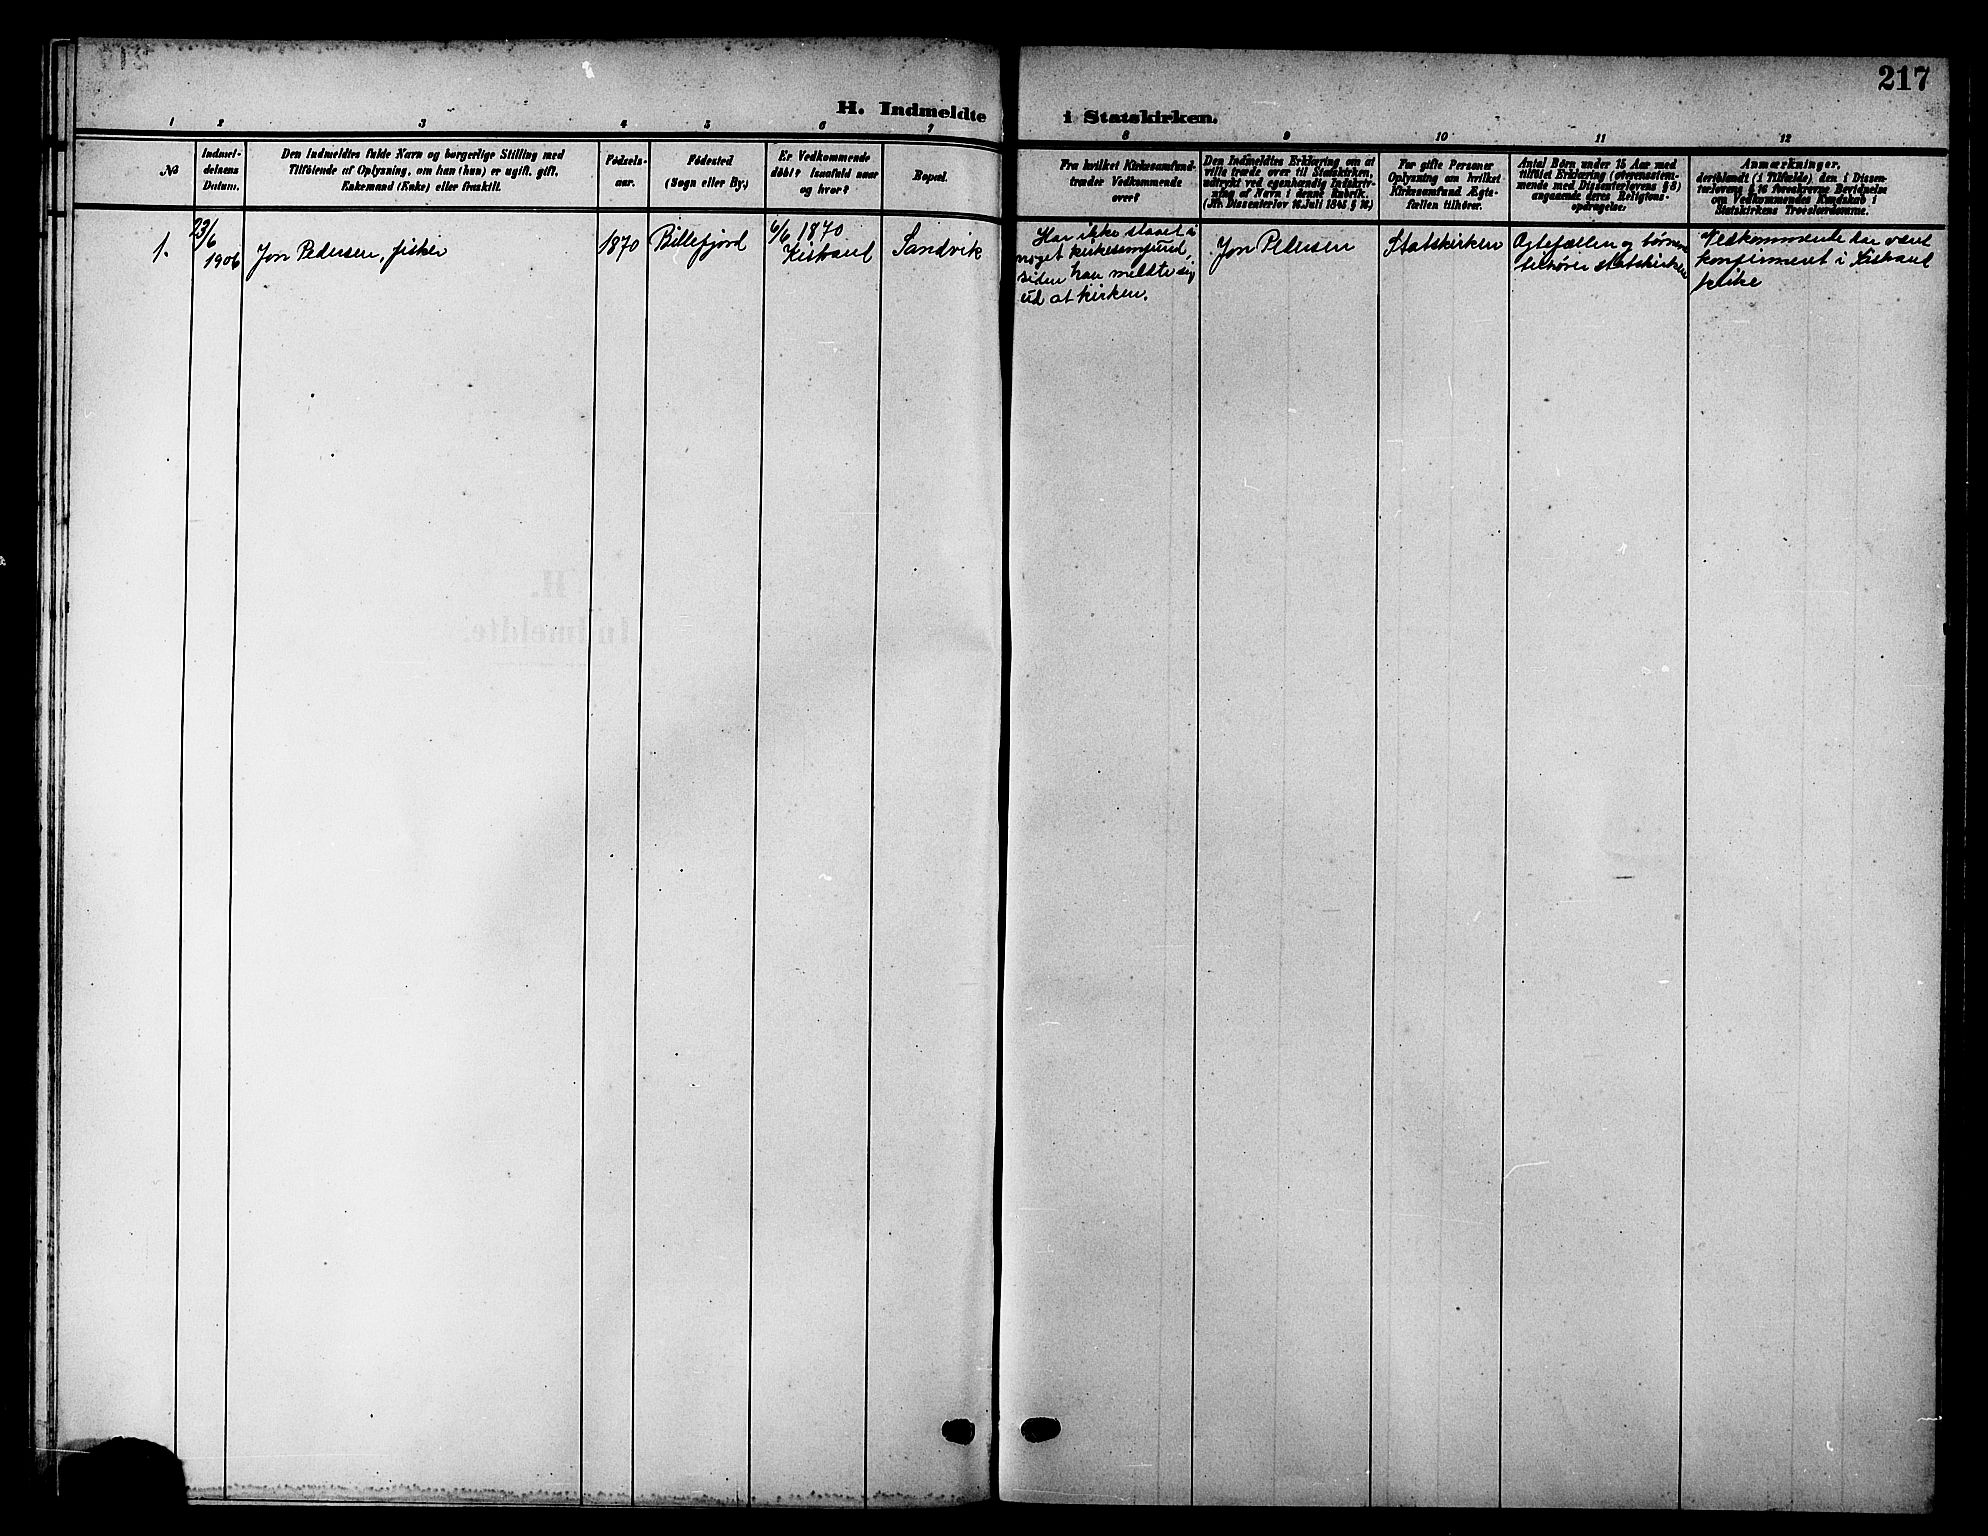 217
H. Indmeldte i Statskirken.
1 2 3 4 5 6 7 8 9 10 11 12
No
Indmel-
delsens
Datum.
Den Indmeldtes fulde Navn og borgerlige Stilling med
Tilföiende af Oplysning, om han (hun) er ugift, gift,
Enkemand (Enke) eller fraskilt.
Födsels-
aar.
Födested
(Sogn eller By.)
Er Vedkommende
döbt? Isaafald naar
og hvor?
Bopæl.
Fra hvilket Kirkesamfund
træder Vedkommende
over?
Den Indmeldtes Erklæring om at
ville træde over til Statskirken,
udtrykt ved egenhændig Indskriv-
ning af Navn i denne Rubrik.
(Jfr. Dissenterlov 16 Juli 1845 § 16.)
For gifte Personer
Oplysning om hvilket
Kirkesamfund Ægte-
fællen tilhörer.
Antal Börn under 15 Aar med
tilföiet Erklæring (overensstem-
mende med Dissenterlovens § 8)
angaaende deres Religions-
opdragelse.
Anmærkninger,
deriblandt (i Tilfælde) den i Dissen-
terlovens § 16 foreskrevne Bevidnelse
om Vedkommendes Kundskab i
Statskirkens Troeslærdomme.
1.
23/6
1906
Jon Pedersen, fisker
1870
Billefjord
6/6 1870
Kistrand
Sandvik
Har ikke staaet i
noget kirkesamfund,
siden han meldte sig
ud af kirken.
Jon Pedersen
Statskirken
Ægtefællen og børnene
tilhører statskirken
Vedkommende har været
konfirmeret i Kistrand
kirke
H.
Indmeldte.